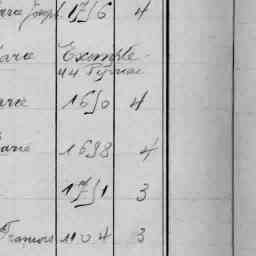 Joseph 1756 4
Marie Exempte
4
arie 1650 4
arie 1698 4
1751 3
François 1104 3